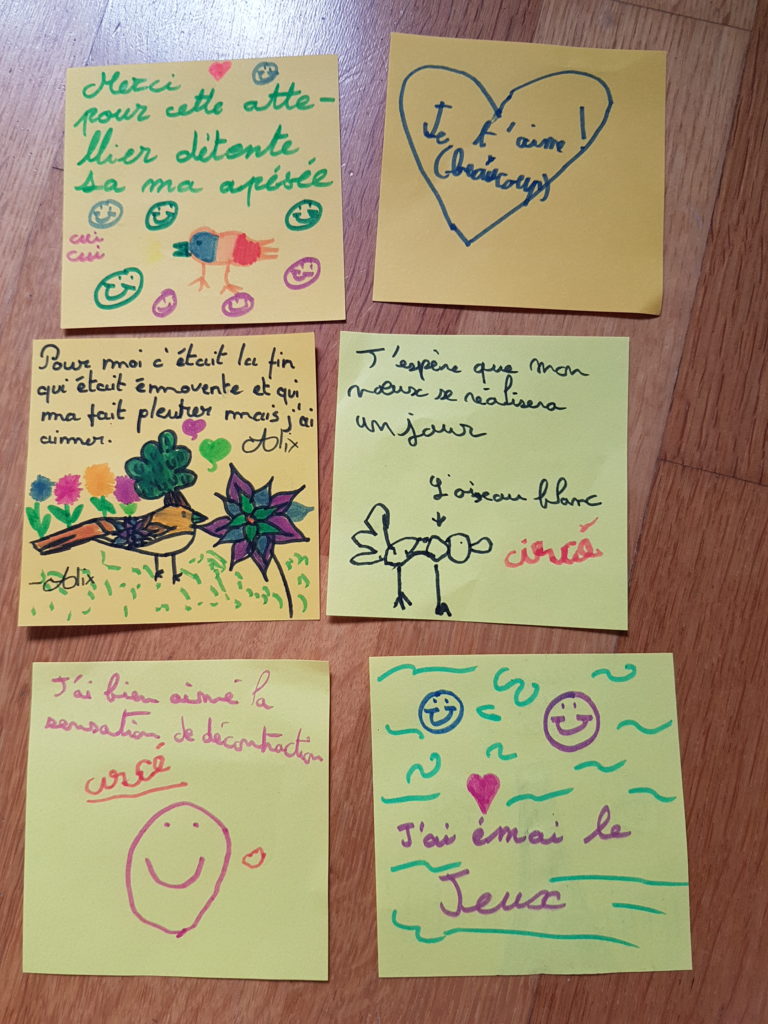 Merci
pour cette atte-
llier détente
sa ma apésée
cui
cui
Je t'aime !
(beaucoup)
Pour moi c'était la fin
qui était émmovente et qui
ma fait pleurer mais j'ai
aimer.
Alix
-Alix
J'espère que mon
vœux se réalisera
un jour
L'oiseau blanc
circé
J'ai bien aimé la
sensation de décontraction
circé
J'ai émai le
Jeux